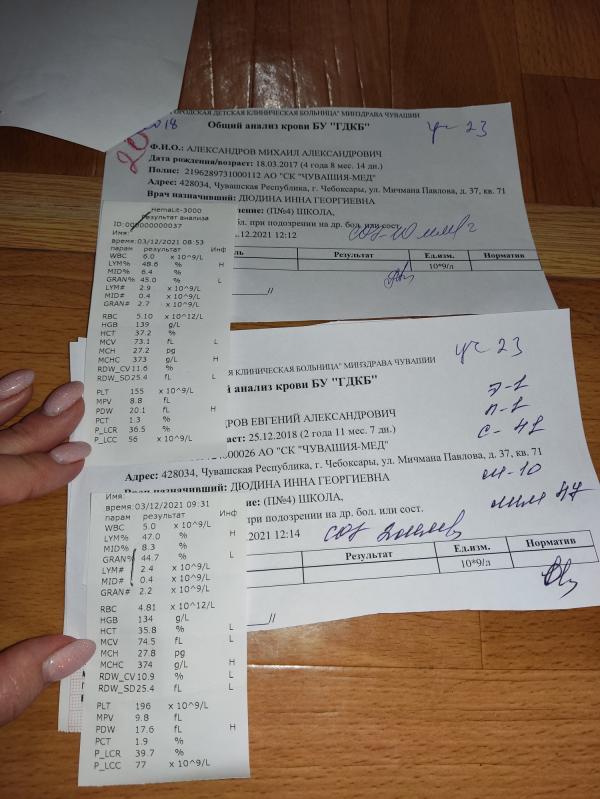 ГОРОДСКАЯ ДЕТСКАЯ КЛИНИЧЕСКАЯ БОЛЬНИЦА" МИНЗДРАВА ЧУВАШИИ
Общий анализ крови БУ "ГДКБ"
уч 23
Ф.И.О.: АЛЕКСАНДРОВ МИХАИЛ АЛЕКСАНДРОВИЧ
Дата рождения/возраст: 18.03.2017 (4 года 8 мес. 14 дн.)
Полис: 2196289731000112 АО "СК "ЧУВАШИЯ-МЕД"
Адрес: 428034, Чувашская Республика, г. Чебоксары, ул. Мичмана Павлова, д. 37, кв. 71
Врач назначивший: ДЮДИНА ИННА ГЕОРГИЕВНА
ение: (П№4) ШКОЛА,
бл. при подозрении на др. бол. или сост.
.12.2021 12:12
СОЭ-10 мм/ч
ль Результат Ед.изм. Норматив
10*9/л
//
HemaLit-3000
Результат анализа
ID:000000000037
Имя:
время:03/12/2021 08:53
парам результат Инф
WBC 6.0 x 10^9/L
LYM% 48.6 % H
MID% 6.4 %
GRAN% 45.0 % L
LYM# 2.9 x 10^9/L
MID# 0.4 x 10^9/L
GRAN# 2.7 x 10^9/L
RBC 5.10 x 10^12/L
HGB 139 g/L
HCT 37.2 %
MCV 73.1 fL L
MCH 27.2 pg
MCHC 373 g/L H
RDW_CV 11.6 % L
RDW_SD 25.4 fL L
PLT 155 x 10^9/L
MPV 8.8 fL
PDW 20.1 fL H
PCT 1.3 %
P_LCR 36.5 %
P_LCC 56 x 10^9/L
Я КЛИНИЧЕСКАЯ БОЛЬНИЦА" МИНЗДРАВА ЧУВАШИИ
й анализ крови БУ "ГДКБ"
уч 23
РОВ ЕВГЕНИЙ АЛЕКСАНДРОВИЧ
раст: 25.12.2018 (2 года 11 мес. 7 дн.)
000026 АО "СК "ЧУВАШИЯ-МЕД"
Адрес: 428034, Чувашская Республика, г. Чебоксары, ул. Мичмана Павлова, д. 37, кв. 71
назначивший: ДЮДИНА ИННА ГЕОРГИЕВНА
ние: (П№4) ШКОЛА,
при подозрении на др. бол. или сост.
.2021 12:14
Э-1
П-1
С-41
М-10
лим 47
СОЭ
Результат Ед.изм. Норматив
10*9/л
//
Имя:
время:03/12/2021 09:31
парам результат Инф
WBC 5.0 x 10^9/L
LYM% 47.0 % H
MID% 8.3 %
GRAN% 44.7 % L
LYM# 2.4 x 10^9/L
MID# 0.4 x 10^9/L
GRAN# 2.2 x 10^9/L
RBC 4.81 x 10^12/L
HGB 134 g/L
HCT 35.8 % L
MCV 74.5 fL L
MCH 27.8 pg
MCHC 374 g/L H
RDW_CV 10.9 % L
RDW_SD 25.4 fL L
PLT 196 x 10^9/L
MPV 9.8 fL
PDW 17.6 fL H
PCT 1.9 %
P_LCR 39.7 %
P_LCC 77 x 10^9/L